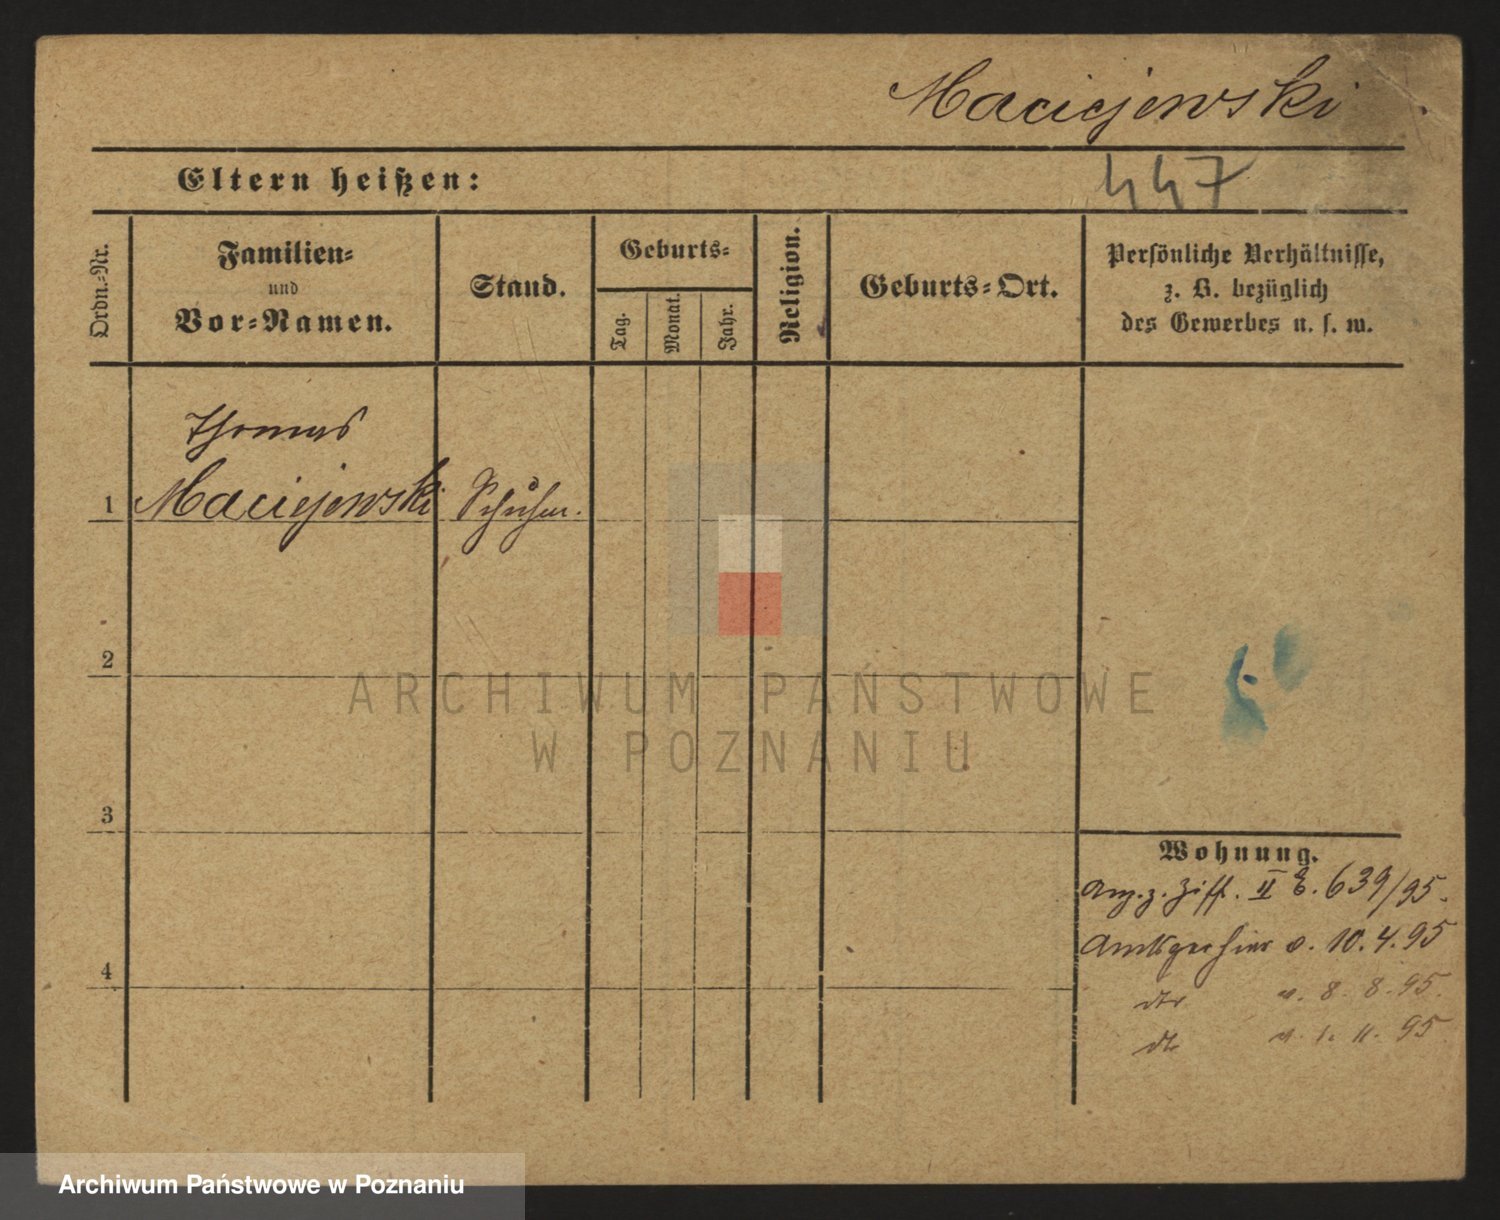 Maciejewski
447
Eltern heißen:
Ordn.-Nr.
Familien-
und
Vor-Namen.
Stand.
Geburts-
Tag.
Monat.
Jahr.
Religion.
Geburts-Ort.
Persönliche Verhältnisse,
z. B. bezüglich
des Gewerbes u. s. w.
Thomas
1 Maciejewski
2
3
4
Wohnung.
Anz. z. Ziff. II E. 639/95.
v. 10.4.95
v. 8. 8. 95.
v. 1. 11. 95
ARCHIWUM PAŃSTWOWE
W POZNANIU
Archiwum Państwowe w Poznaniu